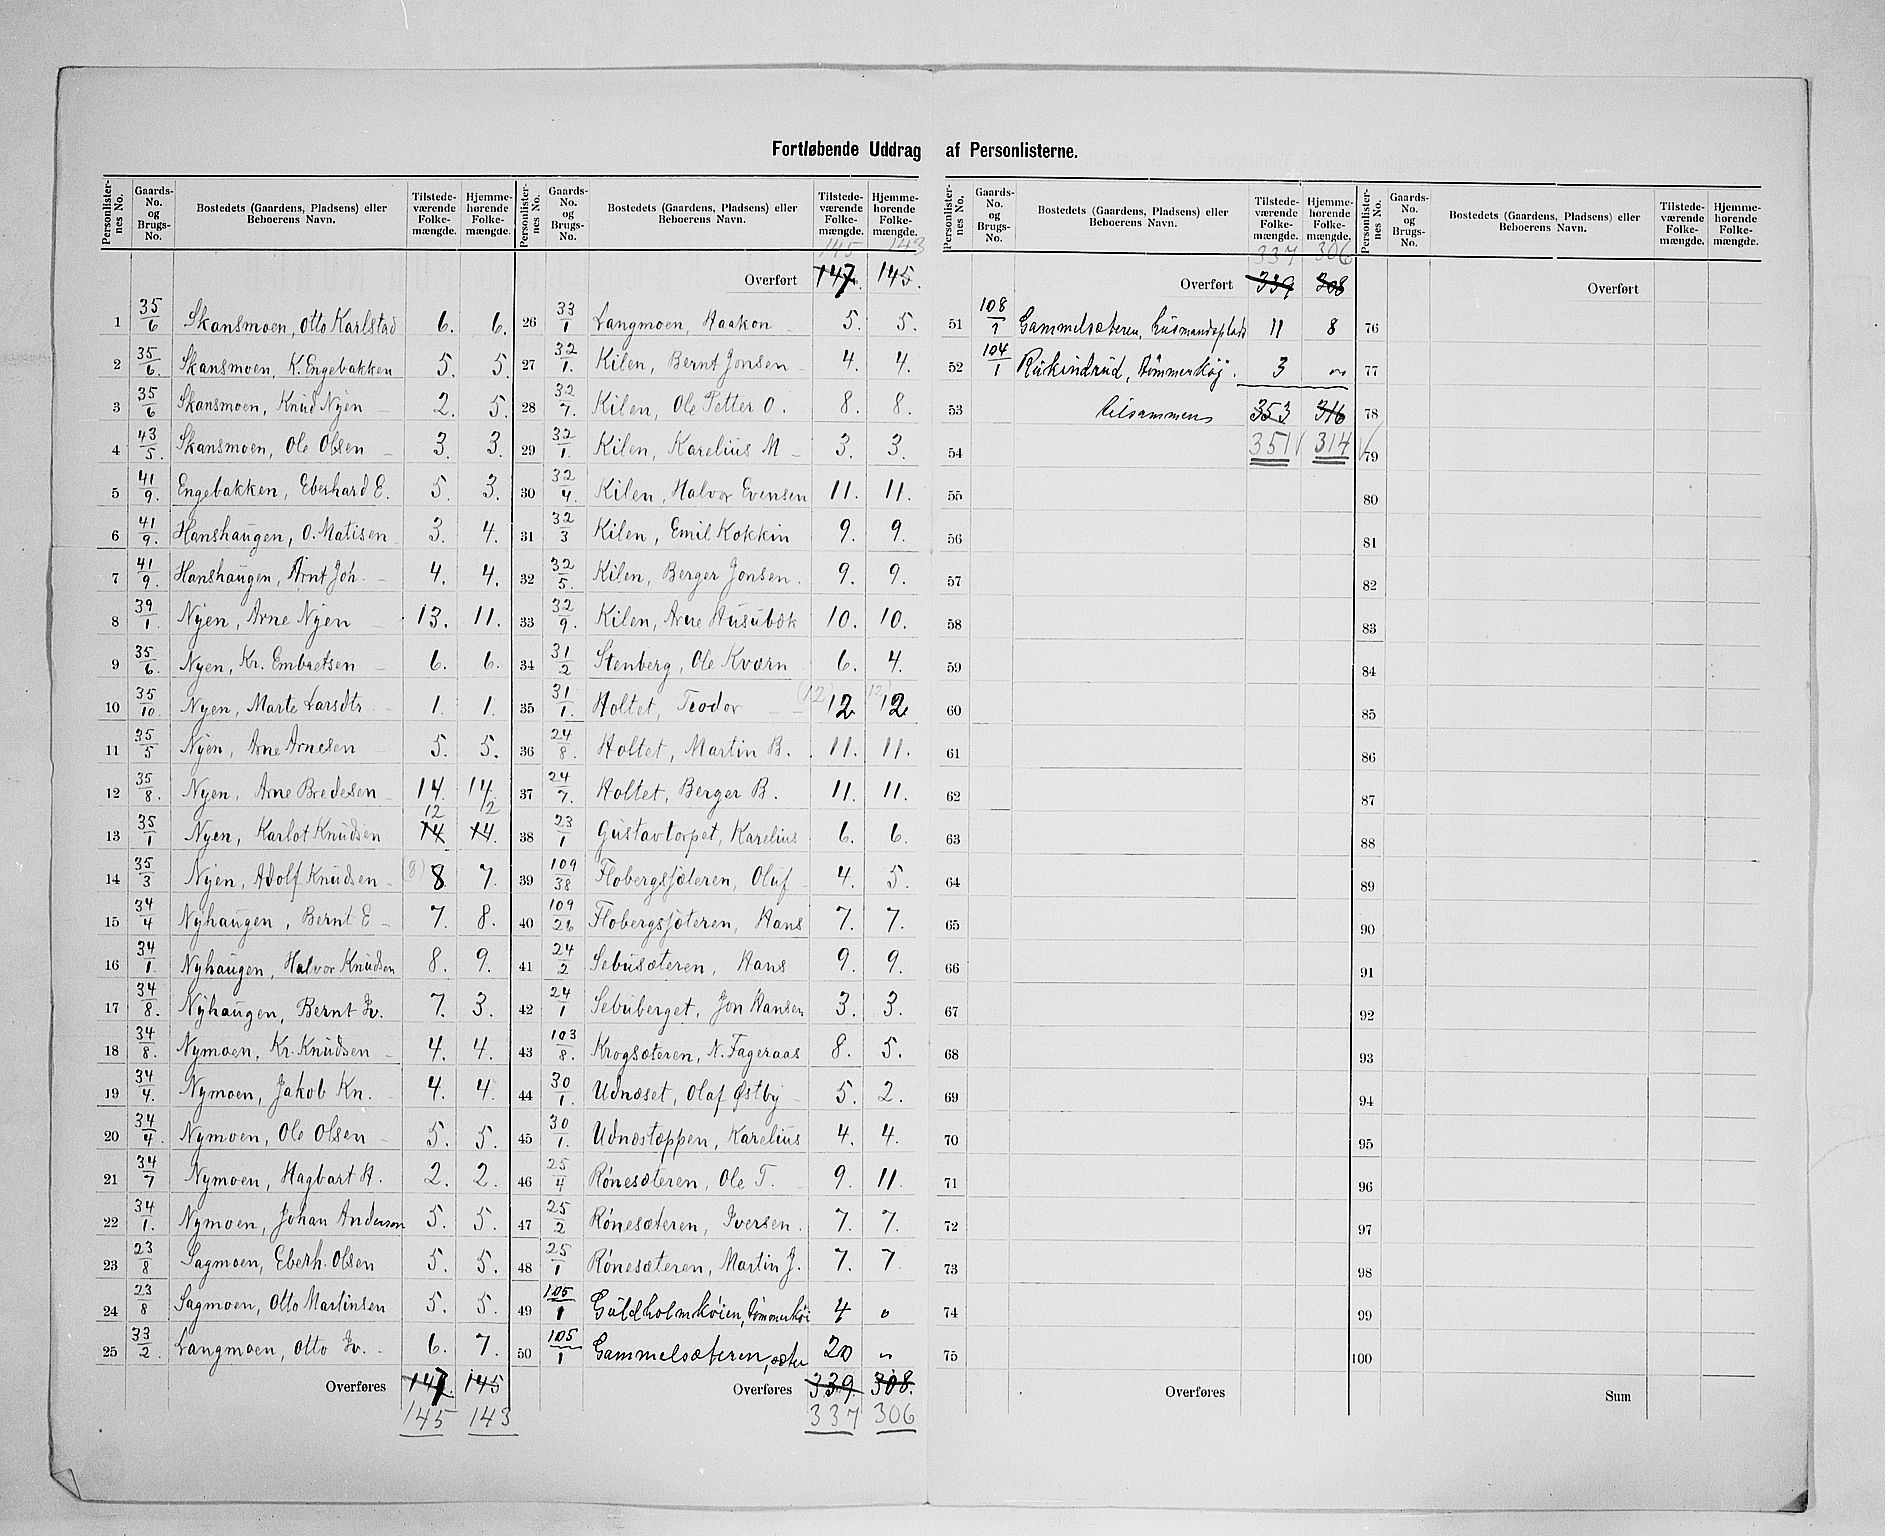 Fortløbende Uddrag af Personlisterne.
Personlisternes No. | Gaards-No. og Brugs-No. | Bostedets (Gaardens, Pladsens) eller Beboerens Navn. | Tilstedeværende Folkemængde. | Hjemmehørende Folkemængde.
1 35/6 Skansmoen, Otto Karlstad 6. 6.
2 35/6. Skansmoen, K. Engebakken 5. 5.
3 35/6 Skansmoen, Knud Nyen 2. 5.
4 43/5. Skansmoen, Ole Olsen 3. 3.
5 41/9. Engebakken, Eberhard E. 5. 3.
6 41/9. Hanshaugen, O. Matisen 3. 4.
7 41/9. Hanshaugen, Arnt Joh. 4. 4.
8 39/1. Nyen, Arne Nyen 13. 11.
9 35/6. Nyen, Kr. Embretsen 6. 6.
10 35/10. Nyen, Marte Larsdtr. 1. 1.
11 35/5 Nyen, Arne Arnesen 5. 5.
12 35/8. Nyen, Arne Bredesen 14. 14.
12 12
13 35/1 Nyen, Karlot Knudsen 14 14.
14 35/3 Nyen, Adolf Knudsen (8) 8 7.
15 34/4 Nyhaugen, Bernt E 7. 8.
16 34/1. Nyhaugen, Halvor Knudsen 8. 9.
17 34/8. Nyhaugen, Bernt Iv. 7. 3.
18 34/8. Nymoen, Kr. Knudsen 4. 4.
19 34/4. Nymoen, Jakob Kn. 4. 4
20 34/4. Nymoen, Ole Olsen 5. 5.
21 34/7 Nymoen, Hagbart H. 2. 2.
22 34/1. Nymoen, Johan Anderson 5. 5.
23 23/8 Sagmoen, Eberh. Olsen 5. 5.
24 23/8 Sagmoen, Otto Martinsen 5. 5.
25 33/2. Langmoen, Otto Iv. 6. 7.
Overføres 147. 145
145 143
Personlisternes No. | Gaards-No. og Brugs-No. | Bostedets (Gaardens, Pladsens) eller Beboerens Navn. | Tilstedeværende Folkemængde. | Hjemmehørende Folkemængde.
145 143
Overført 147. 145.
26 33/1 Langmoen, Haakon 5. 5.
27 32/1. Kilen, Bernt Jonsen 4. 4.
28 32/7. Kilen, Ole Petter O. 8. 8.
29 32/1. Kilen, Karelius M 3. 3.
30 32/4. Kilen, Halvor Evensen 11. 11.
31 32/3 Kilen, Emil Kokkin 9. 9.
32 32/5. Kilen, Berger Jonsen. 9. 9.
33 32/9. Kilen, Arne Husubæk 10. 10.
34 31/2 Stenberg, Ole Kværn 6. 4.
35 31/1. Holtet, Teodor (12) 12 (12) 12
36 24/8. Holtet, Martin B. 11. 11.
37 24/7. Holtet, Berger B. 11. 11.
38 23/1 Gustavtorpet, Karelius 6. 6.
39 109/38 Flobergsjæteren, Oluf 4. 5.
40 109/26 Flobergsjæteren, Hans 7. 7.
41 24/2 Sebusæteren, Hans 9. 9.
42 24/1 Sebuberget, Jon Hansen 3. 3.
43 103/8. Krogsæteren, N. Fageraas 8. 5.
44 30/1. Udnæset, Olaf Østby 5. 2.
45 30/1. Udnæstæppen, Karelius 4. 4.
46 25/4 Rønesæteren, Ole T. 9. 11.
47 25/2 Rønesæteren, Iversen. 7. 7.
48 25/1 Rønesæteren, Martin J. 7. 7
49 105/1 Guldholmkøien, Tømmerkøi 4 0
50 105/1 Gammelsæteren, sæter 20 „
Overføres 339. 308.
337 306
Personlisternes No. | Gaards-No. og Brugs-No. | Bostedets (Gaardens, Pladsens) eller Beboerens Navn. | Tilstedeværende Folkemængde. | Hjemmehørende Folkemængde.
337 306
Overført 339 308
51 108/1 Gammelsæteren, husmandsplads 11 8
52 104/1 Rukindrud, Tømmerkøj. 3 „
53 tilsammen 353 316
54 351 314
55
56
57
58
59
60
61
62
63
64
65
66
67
68
69
70
71
72
73
74
75
Overføres
Personlisternes No. | Gaards-No. og Brugs-No. | Bostedets (Gaardens, Pladsens) eller Beboerens Navn. | Tilstedeværende Folkemængde. | Hjemmehørende Folkemængde.
Overført
76
77
78
79
80
81
82
83
84
85
86
87
88
89
90
91
92
93
94
95
96
97
98
99
100
Sum